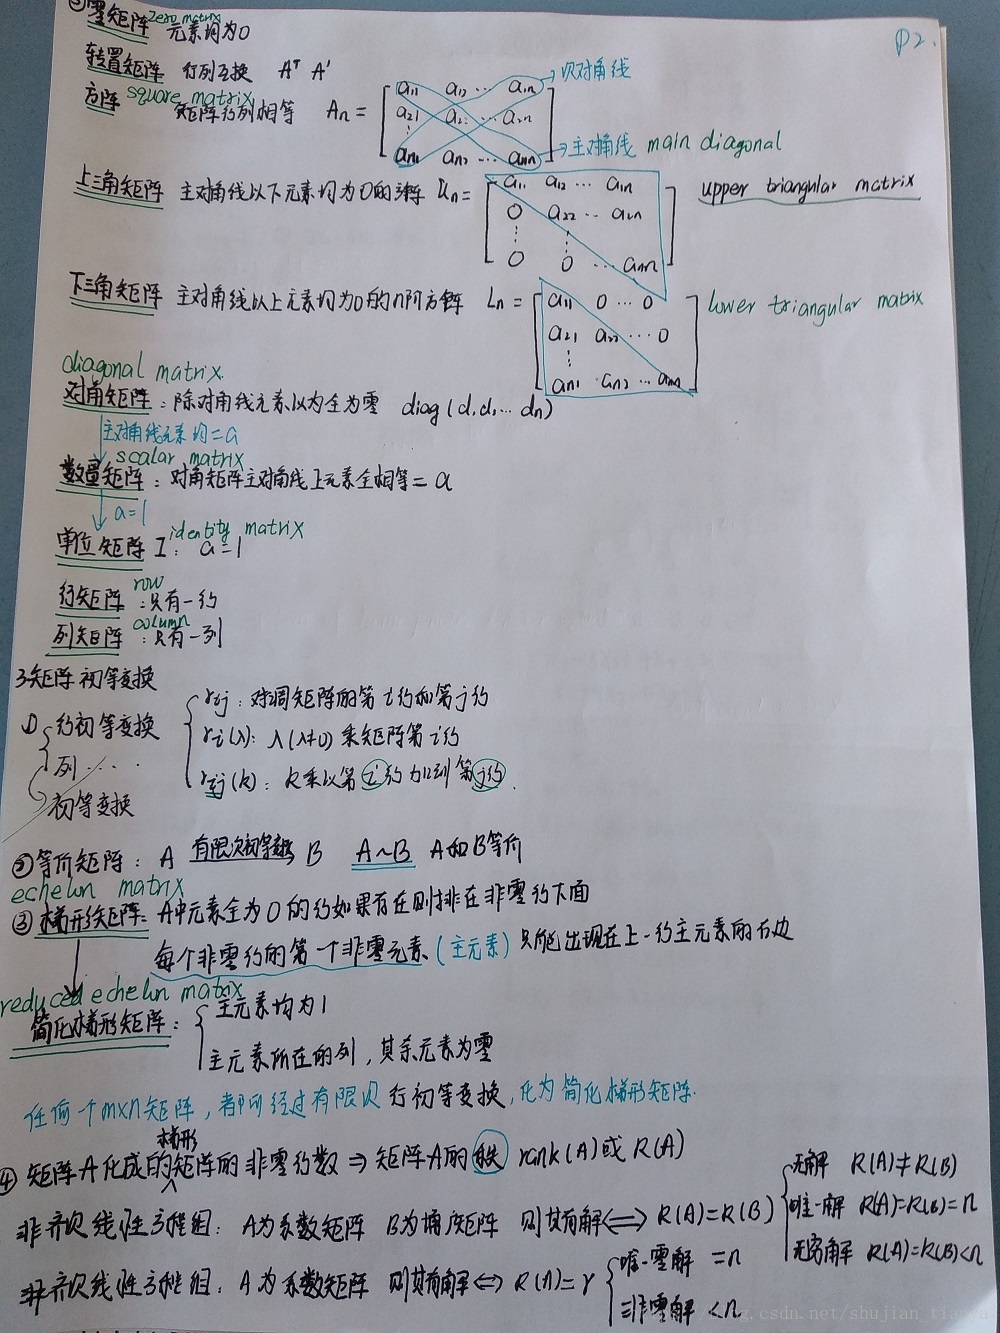 零矩阵 zero matrix 元素均为0
P2.
转置矩阵 行列互换 Aᵀ A'
方阵 square matrix 矩阵行列相等 An = [a11 a12 ... a1n
a21 a22 ... a2n
⋮
an1 an2 ... ann]
→次对角线
→主对角线 main diagonal
上三角矩阵 主对角线以下元素均为0的 Un = [a11 a12 ... a1n
0 a22 ... a2n
⋮ ⋮
0 0 ... ann]
upper triangular matrix
下三角矩阵 主对角线以上元素均为0的n阶方阵 Ln = [a11 0 ... 0
a21 a22 ... 0
⋮
an1 an2 ... ann]
lower triangular matrix
diagonal matrix
对角矩阵：除对角线元素以为全为零 diag(d,d,... dn)
主对角线元素均=a
scalar matrix
数量矩阵：对角矩阵主对角线上元素全相等=a
a=1
identity matrix
单位矩阵 I：a=1
row
行矩阵：只有一行
column
列矩阵：只有一列
3矩阵初等变换
① 行初等变换
列 ....
初等变换
rij：对调矩阵的第i行和第j行
ri(λ)：λ(λ≠0)乘矩阵第i行
rij(k)：k乘以第i行加到第j行.
②等价矩阵：A 有限次初等变换 B A~B A和B等价
echelon matrix
③梯形矩阵：A中元素全为0的行如果存在则排在非零行下面
每个非零行的第一个非零元素（主元素）只能出现在上一行主元素的右边
reduced echelon matrix
简化梯形矩阵：主元素均为1
主元素所在的列，其余元素为零
任何一个m×n矩阵，都可经过有限次行初等变换，化为简化梯形矩阵.
④ 矩阵A化成的梯形矩阵的非零行数 ⇒ 矩阵A的秩 rank(A)或R(A)
非齐次线性方程组：A为系数矩阵 B为增广矩阵 则其有解 ⟺ R(A)=R(B)
无解 R(A)≠R(B)
唯一解 R(A)=R(B)=n
无穷解 R(A)=R(B)<n
非齐次线性方程组：A为系数矩阵 则其有解 ⟺ R(A)=r
唯一零解 =n
非零解 <n